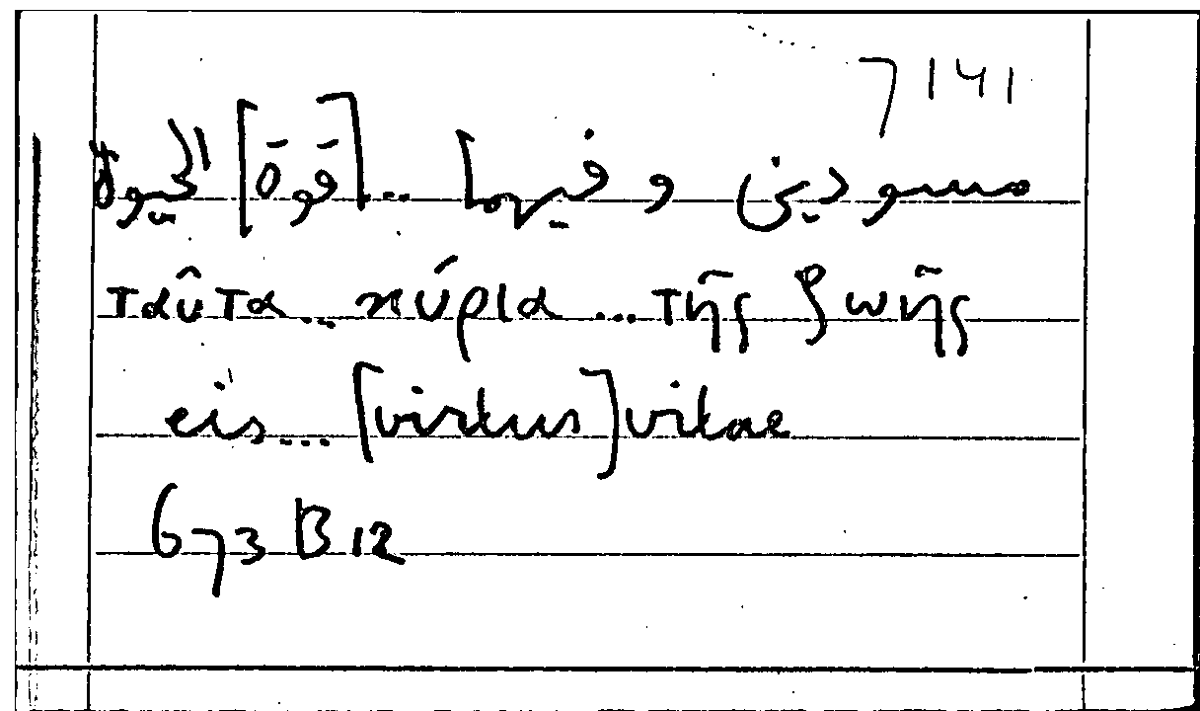 7141
مسودين و فيهما ... [قوة] الحيوة
ταῦτα ... κύρια ... τῆς ζωῆς
eis ... [virtus] vitae
673 B 12